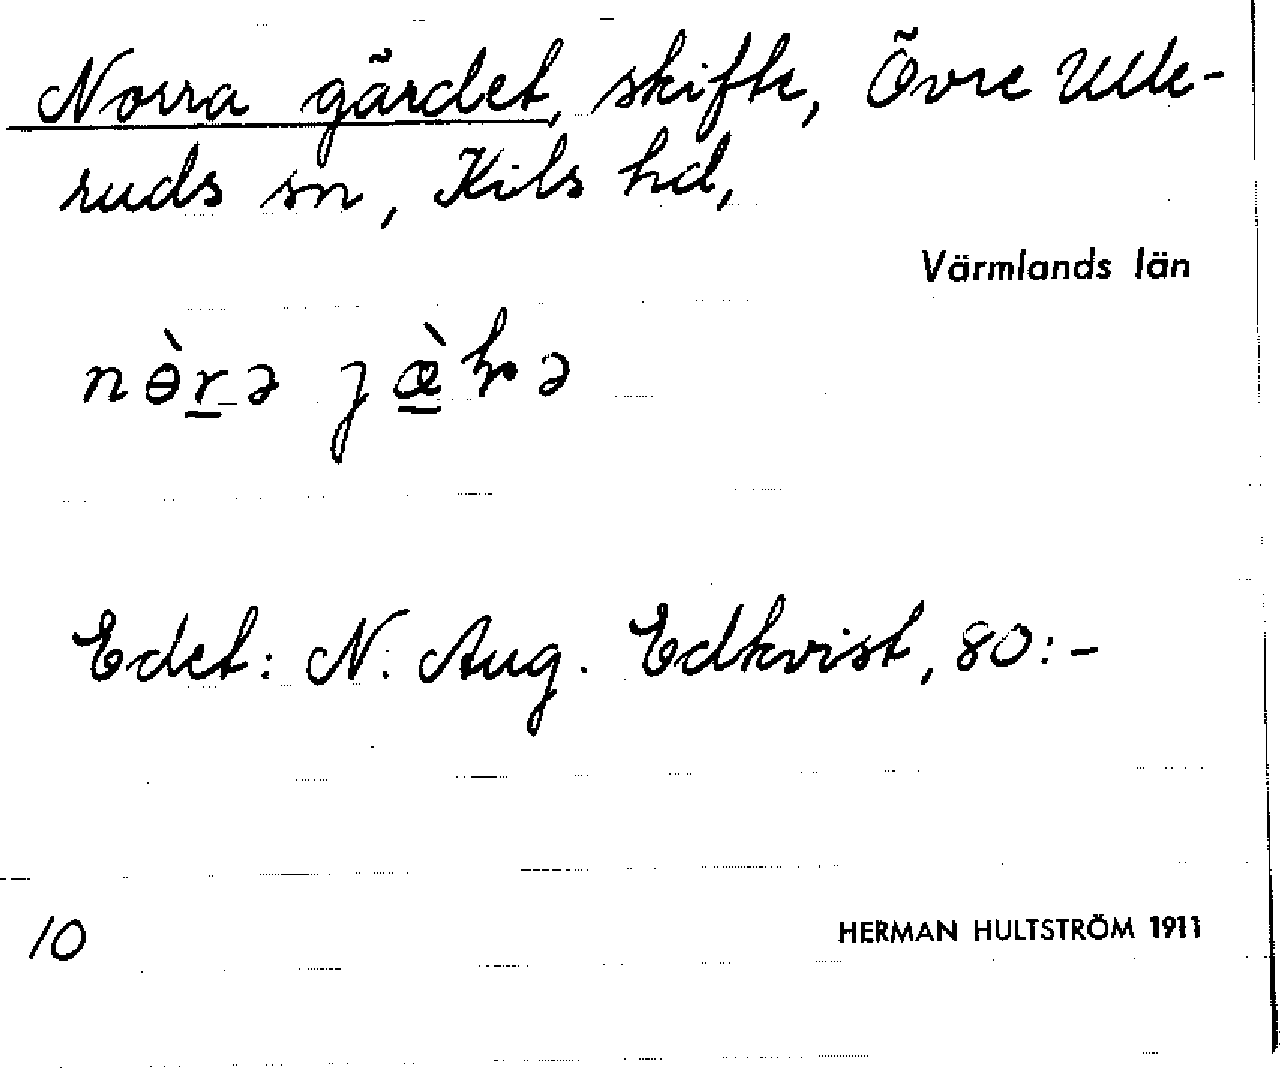 Norra gärdet, skifte, Övre Ulle-
ruds sn, Kils hd,
Värmlands län
Edet: N. Aug. Edkvist, 80:-
10
HERMAN HULTSTRÖM 1911